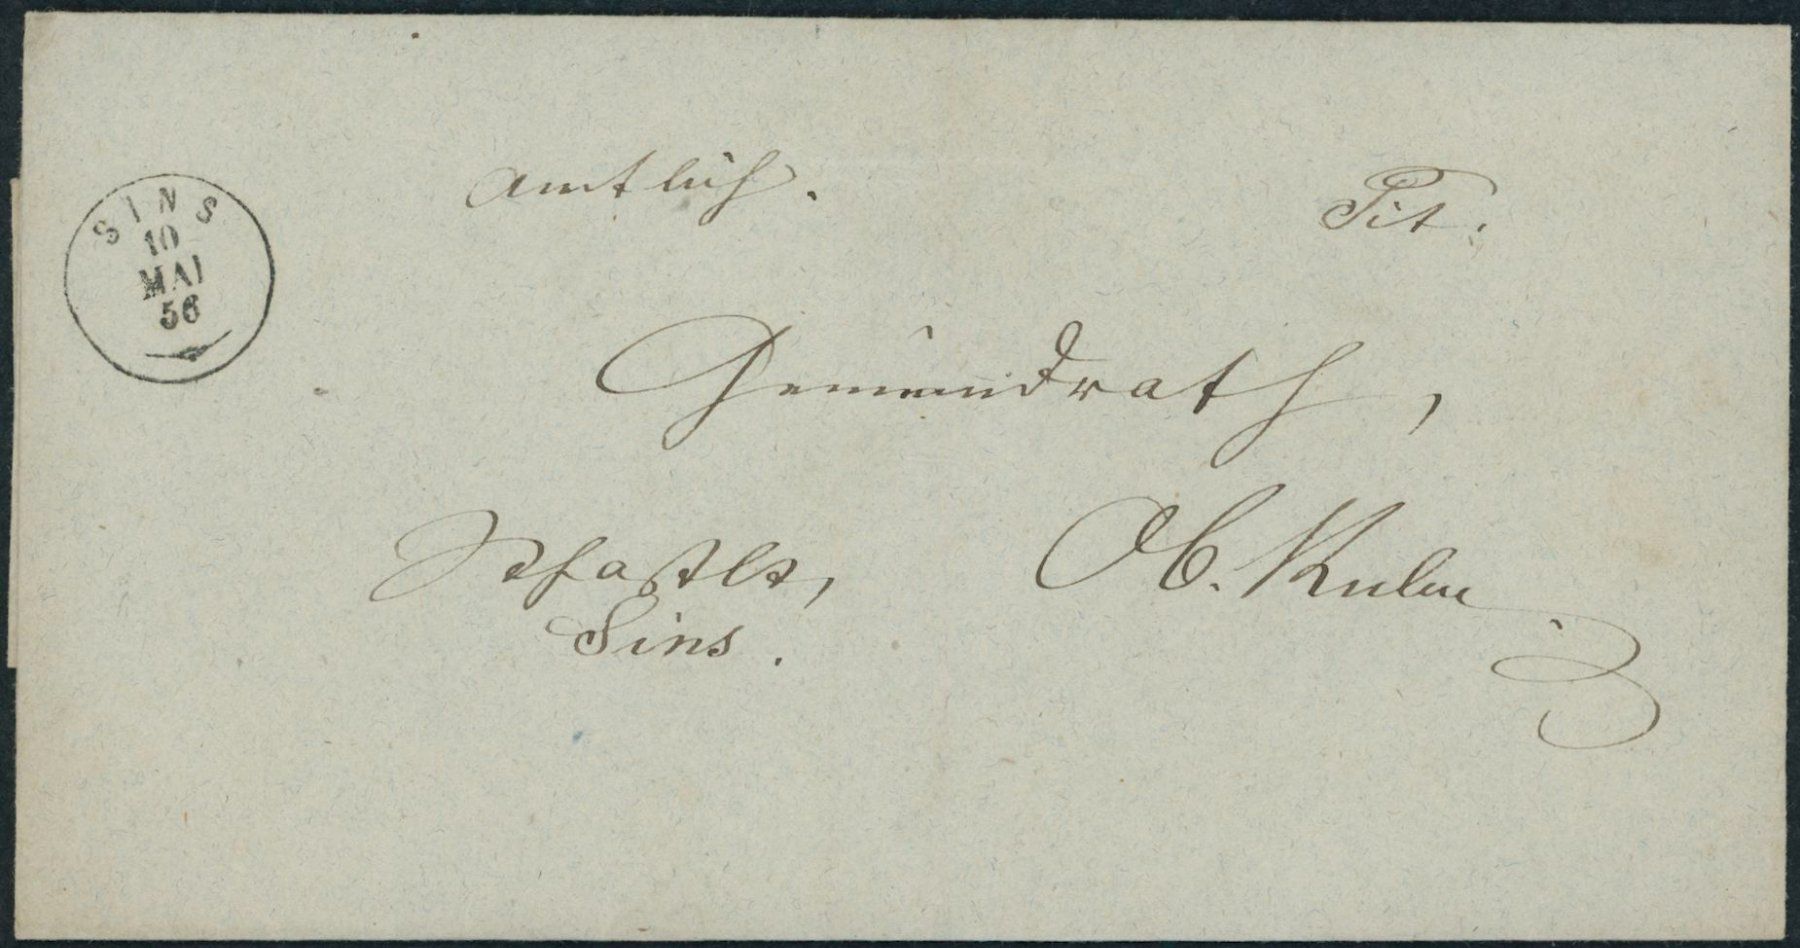 SINS
10
MAI
56
Amtlich.
Tit.
Gemeindrath,
Ob. Kulm
Sins.